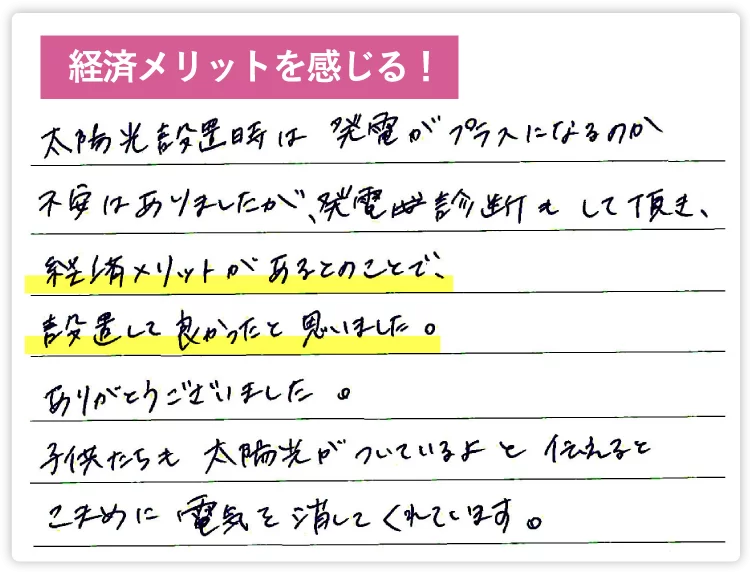 経済メリットを感じる！
太陽光設置時は 発電がプラスになるのか
不安はありましたが、発電診断もして頂き、
経済メリットがあるとのことで、
設置して良かったと思いました。
ありがとうございました。
子供たちも太陽光がついているよと伝えると
こまめに電気を消してくれています。